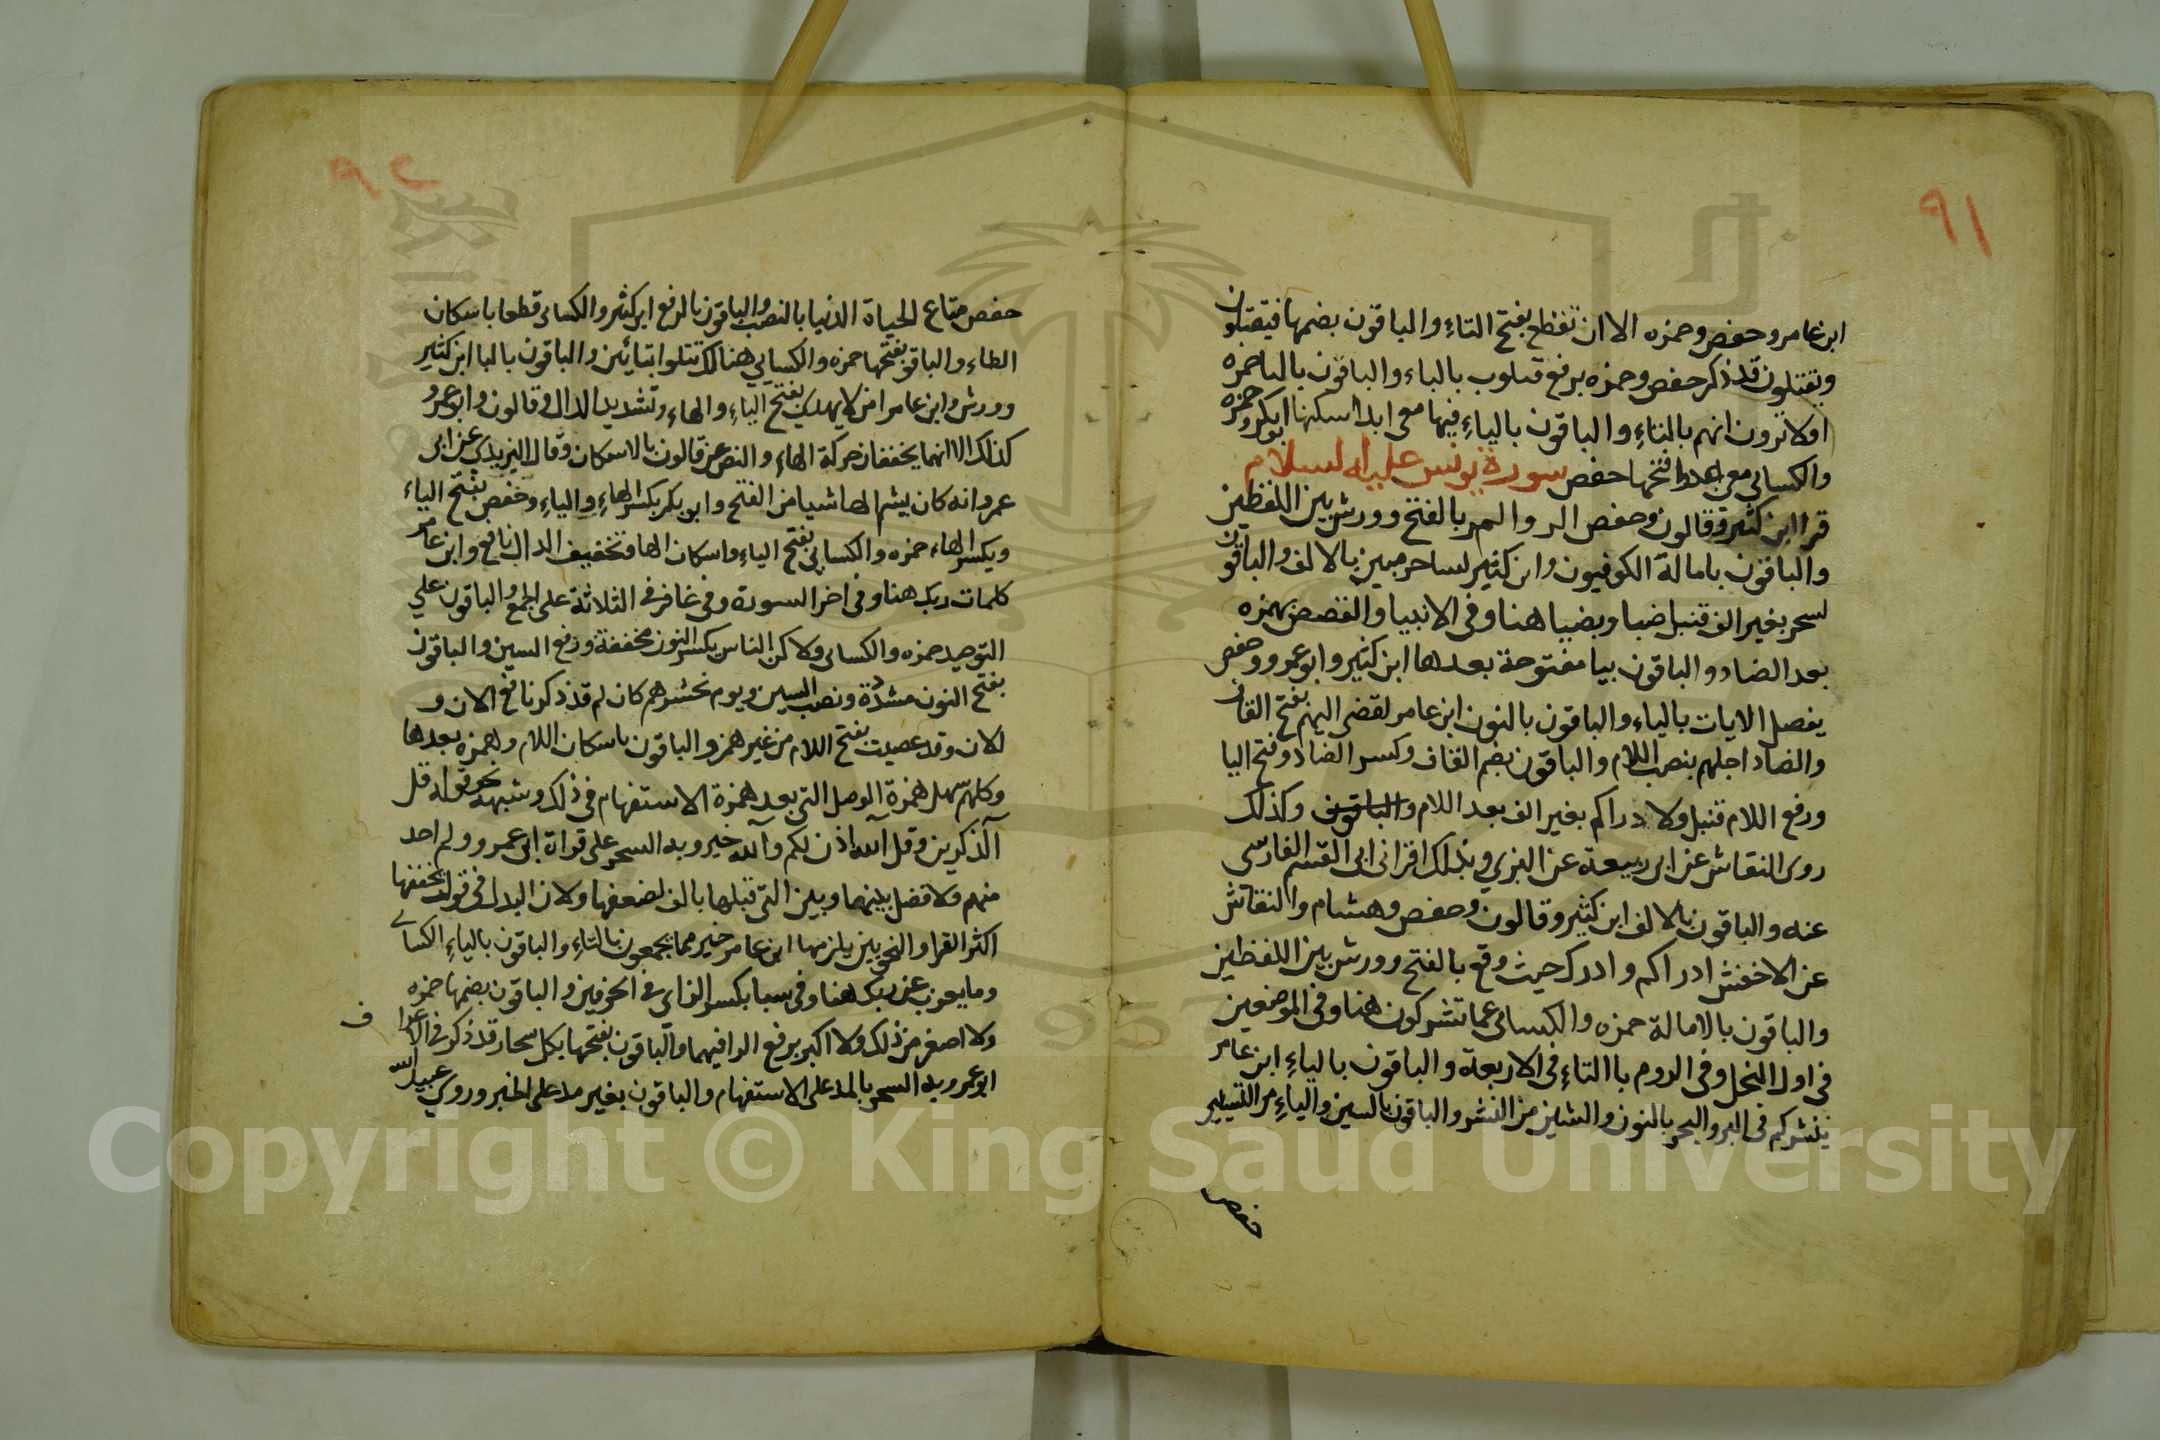 ٩١
ابن عامر وحفص وحمزه الا ان تقطع بفتح التاء والباقون بضمها فيقتلون
ويقتلون قد ذكر حفص وحمزه برفع قلوب بالياء والباقون بالتا حمزه
اولا ترون انهم بالتاء والباقون بالياء فيها معى ابدا اسكنها ابو بكر وحمزه
والكسائى معى عدوا فتحها حفص سورة يونس عليه السلام
قرا ابن كثير وقالون وحفص الر والمر بالفتح وورش بين اللفظين
والباقون بامالة الكوفيون وابن كثير لساحر مبين بالالف والباقون
لسحر بغير الف قنبل ضياء وبضيا هنا وفى الانبيا والقصص بهمزه
بعد الضاد والباقون بيا مفتوحة بعدها ابن كثير وابو عمرو وحفص
يفصل الايات بالياء والباقون بالنون ابن عامر لقضى اليهم بفتح القاف
والضاد اجلهم بنصب اللام والباقون بضم القاف وكسر الضاد وفتح اليا
ورفع اللام قنبل ولا دراكم بغير الف بعد اللام والباقون وكذلك
روى النقاش عن ابى ربيعة عن البزي وبذلك اقرانى ابى القسم الفارسى
عنه والباقون بالالف ابن كثير وقالون وحفص وهشام والنقاش
عن الاخفش ادراكم وادرك حيث وقع بالفتح وورش بين اللفظين
والباقون بالامالة حمزه والكسائى عما تشركون هنا وفى الموضعين
فى اول النحل وفى الروم با التاء فى الاربعة والباقون بالياء ابن عامر
ينشركم فى البر والبحر بالنون والشين من النشر والباقون بالسين والياء من التسيير
حفص
٩٢
حفص متاع الحياة الدنيا بالنصب والباقون بالرفع ابن كثير والكسائى قطعا باسكان
الطاء والباقو بفتحها حمزه والكسايي هنالك تتلوا بتائين والباقون بالبا ابن كثير
وورش وابن عامر امن لا يهدي بفتح الياء والهاء وتشديد الدال وقالون وابو عمرو
كذلك الا انهما يخففان حركة الهاء والنص عن قالون بالاسكان وقال اليزيدى عن ابى
عمرو انه كان يشم الها شيا من الفتح وابو بكر بكسر الهاء والياء وحفص بفتح الياء
ويكسر الهاء حمزه والكسايي بفتح الياء واسكان الها وتخفيف الدال نافع وابن عامر
كلمات ربك هنا وفى اخر السورة وفى غافر فى الثلاثة على الجمع والباقون علي
التوحيد حمزه والكسائى ولاكن الناس بكسر النون مخففة ورفع السين والباقون
بفتح النون مشددة ونصب السين ويوم نحشرهم كان لم قد ذكر نافع الان و
الان وقد عصيت بفتح اللام من غير همز والباقون باسكان اللام وهمزه بعدها
وكلهم سهل همزة الوصل التى بعد همزة الاستفهام فى ذلك وشبهه نحو قوله قل
آلذكرين وقل آلله اذن لكم وآلله خير وبه السحر على قراة ابى عمرو ولم احد
منهم ولا فصل بينهما وبين التى قبلها بالف لضعفها ولان البدل فى قول تخففها
اكثر القرا والنحويين يلزمها ابن عامر خير مما يجمعون بالتاء والباقون بالياء الكسائى
وما يعزب عن ربك هنا وفى سبا بكسر الزاى فى الحرفين والباقون بضمها حمزه
ولا اصغر من ذلك ولا اكبر برفع الرا فيهما والباقون بفتحها بكل سحار قد ذكر فى الاعراف
ابو عمرو به السحر بالمد على الاستفهام والباقون بغير مد على الخبر وروى عبيد الله
Copyright © King Saud University